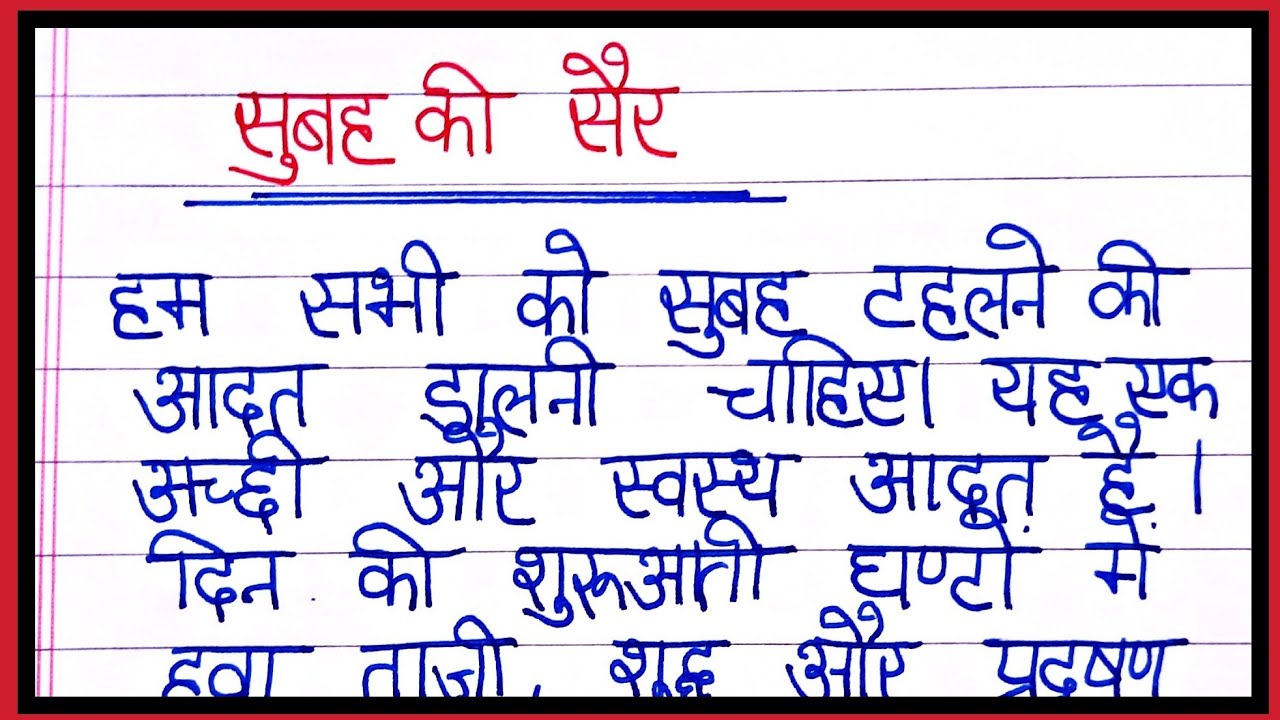 सुबह की सैर
हम सभी को सुबह टहलने की
आदत डालनी चाहिए। यह एक
अच्छी और स्वस्थ आदत है।
दिन की शुरूआती घण्टों में
हवा ताजी, शुद्ध और प्रदूषण